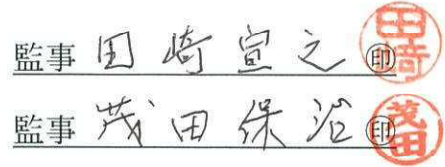 監事 田崎宣之 ㊞ 田崎
監事 茂田保沿 ㊞ 茂田